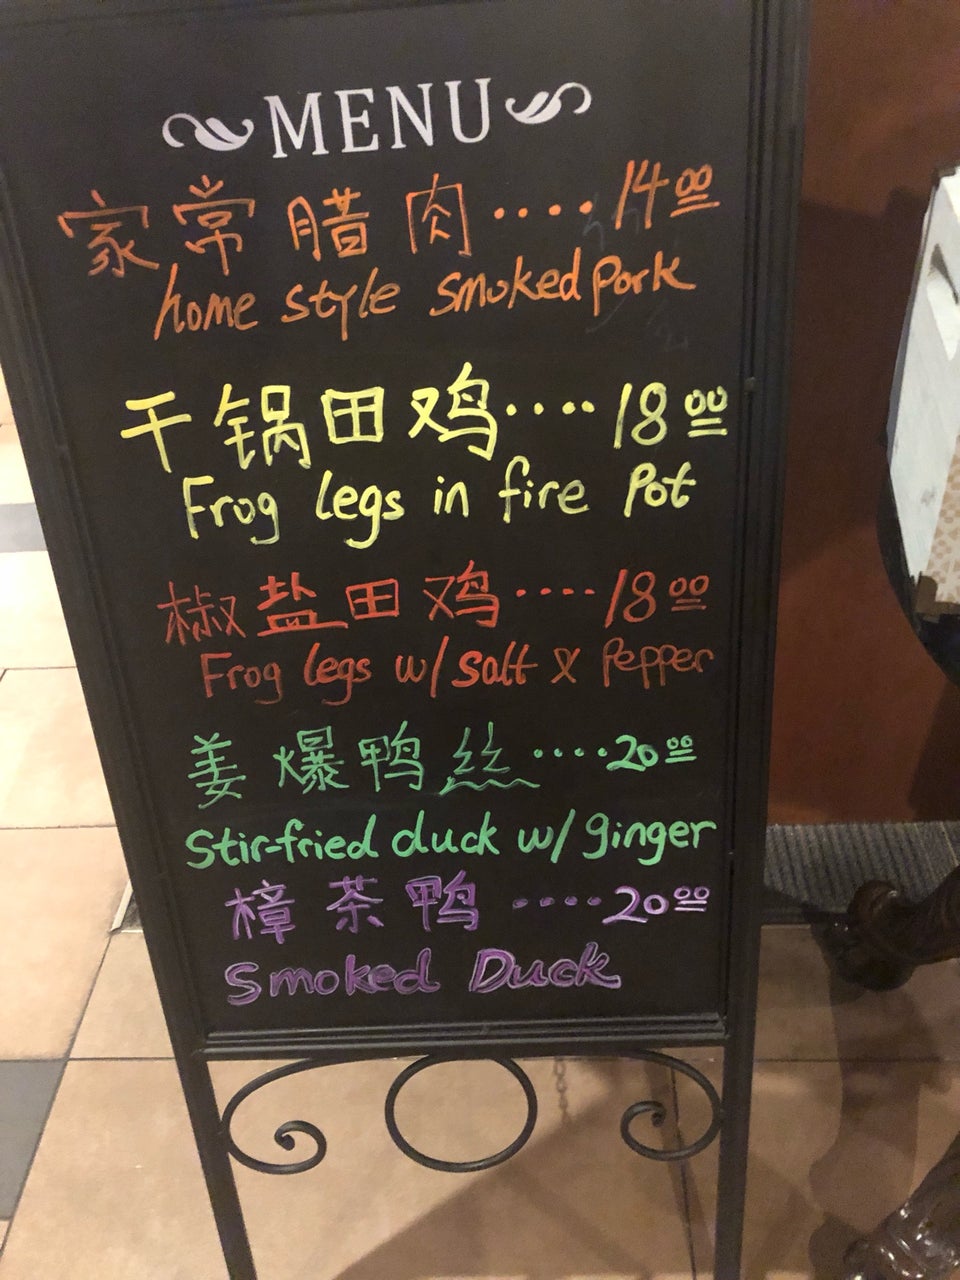 MENU
家常腊肉····14.00
home style smoked pork
干锅田鸡····18.00
Frog legs in fire Pot
椒盐田鸡····18.00
Frog legs w/ Salt & Pepper
姜爆鸭丝····20.00
Stir-fried duck w/ ginger
樟茶鸭····20.00
Smoked Duck